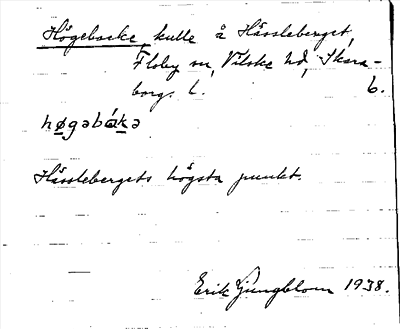 Högebacke, kulle å Hässleberget,
Floby sn, Vilske hd, Skara-
borgs l. 6.
høgəbákə
Hässlebergets högsta punkt.
Erik Ljungblom 1938.